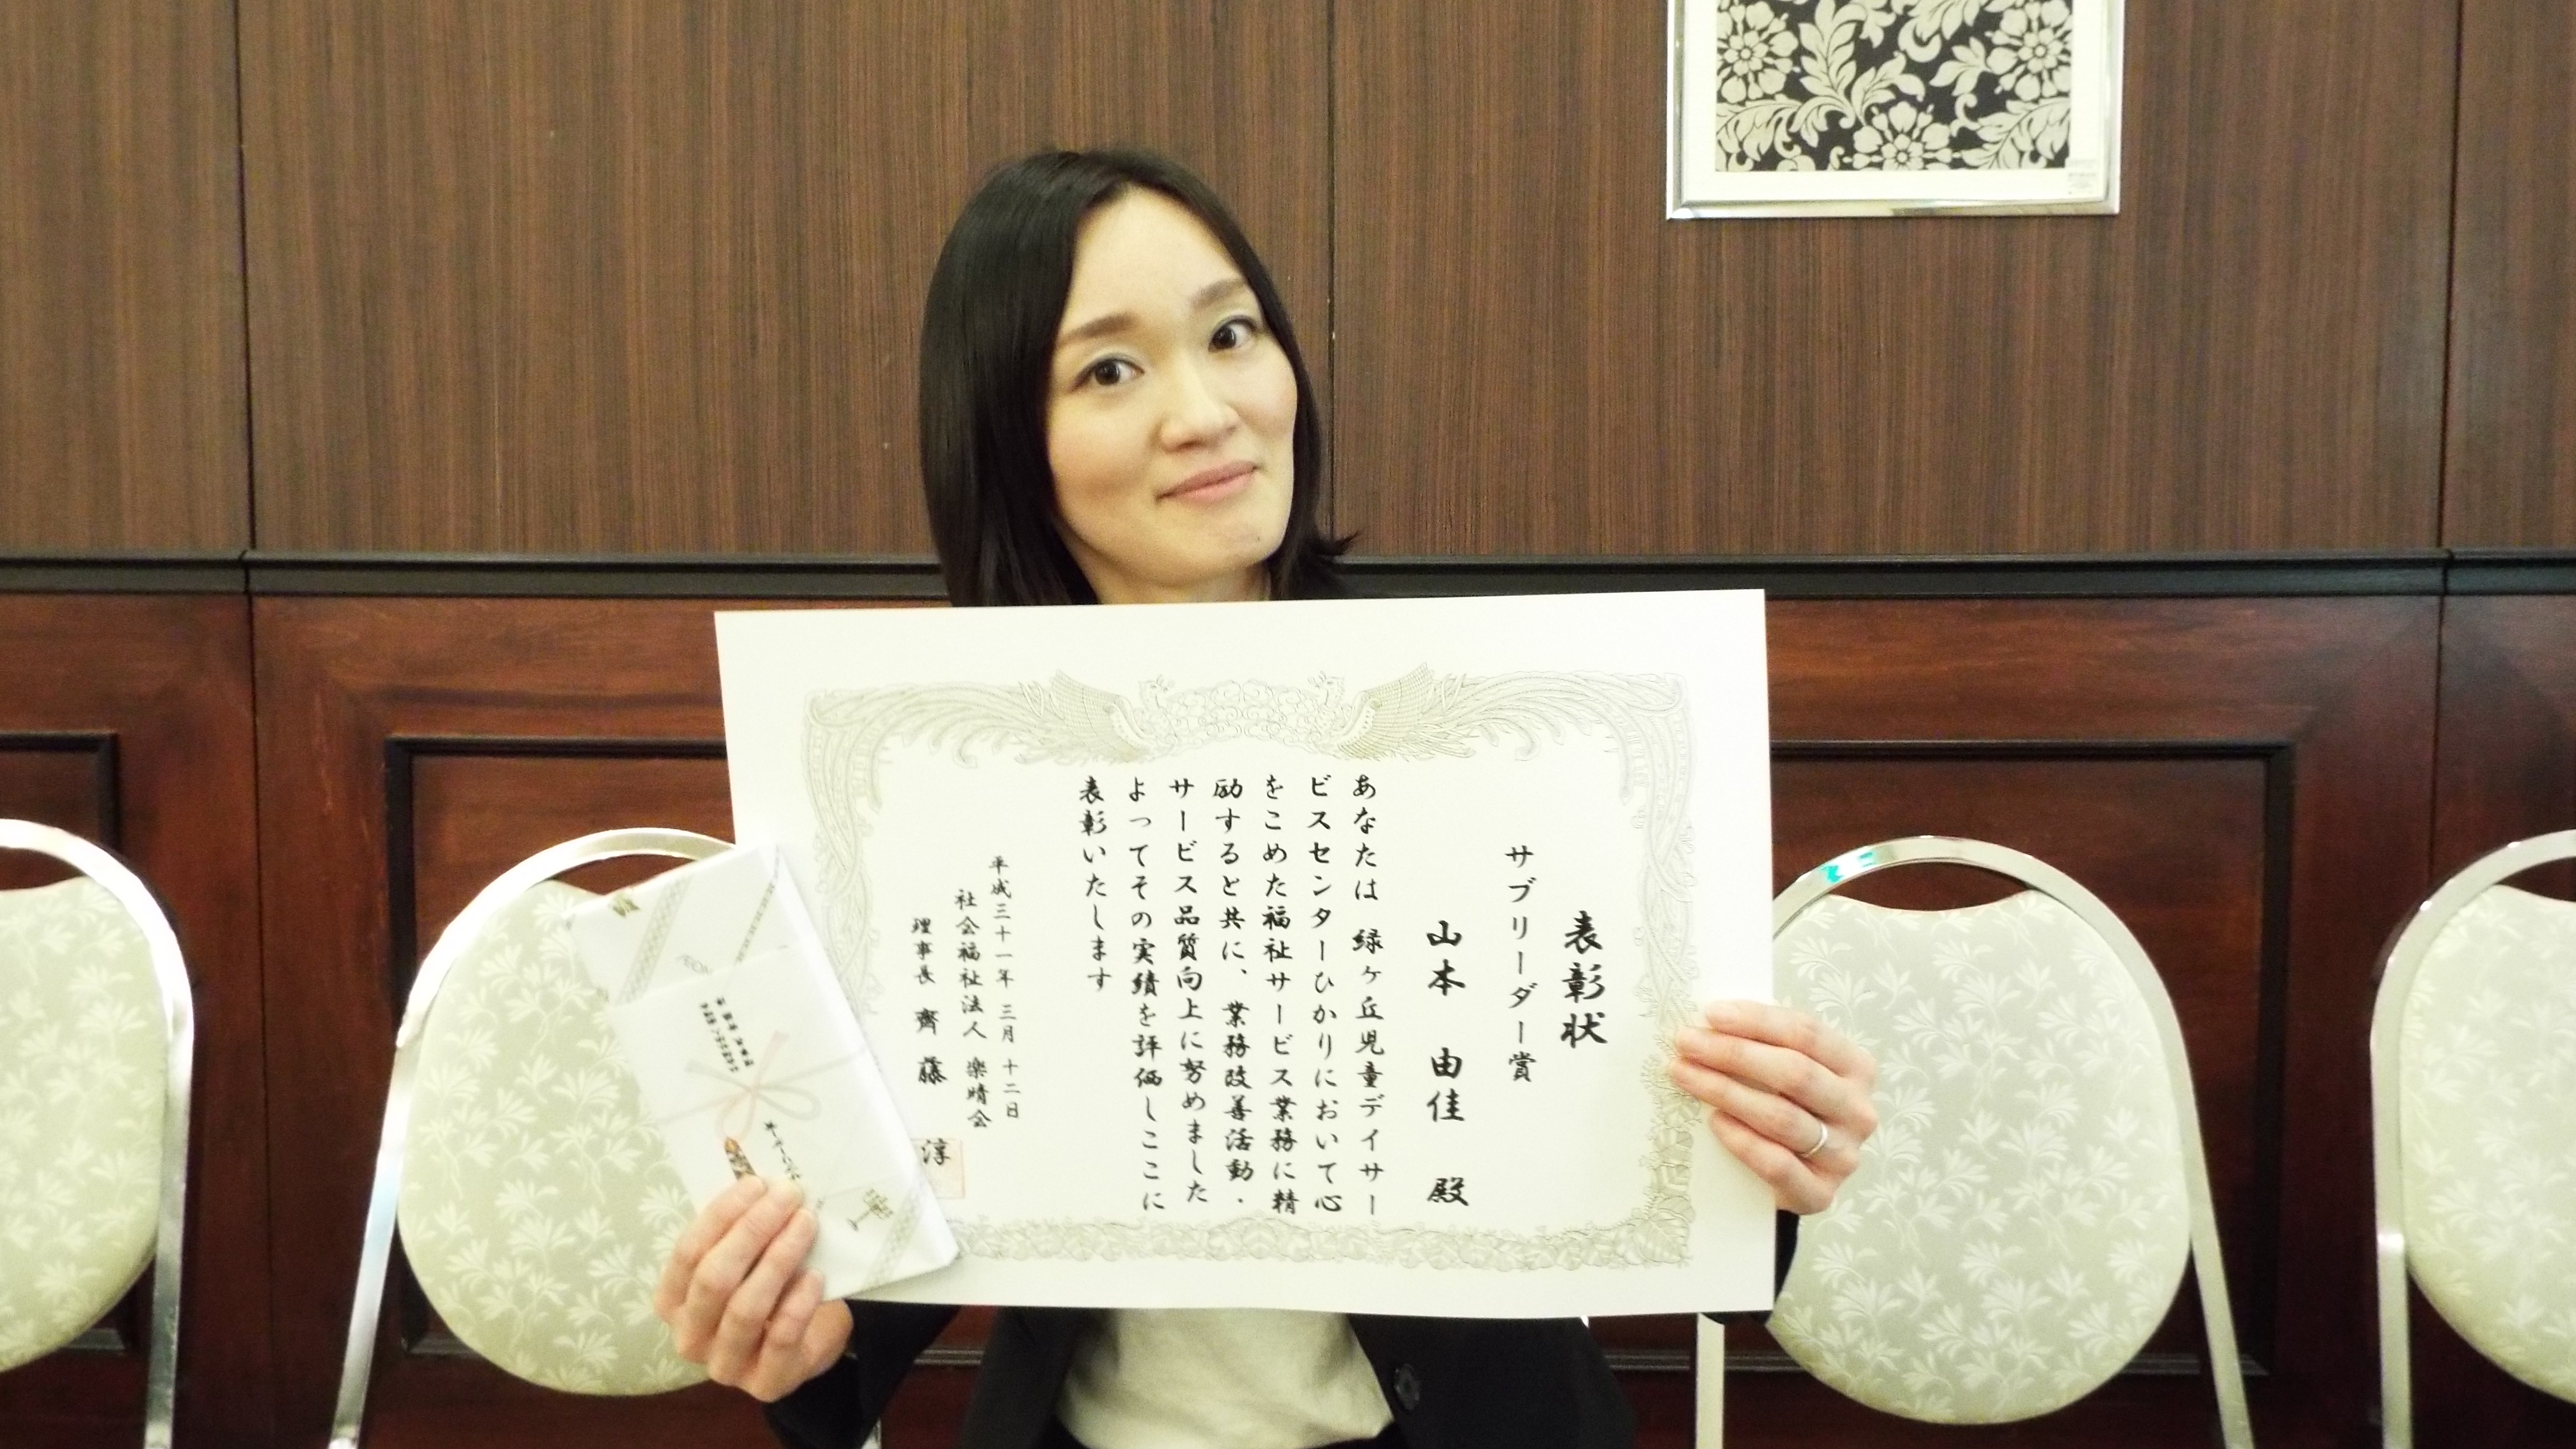 表彰状
サブリーダー賞
山本 由佳 殿
あなたは 緑ヶ丘児童デイサー
ビスセンターひかりにおいて心
をこめた福祉サービス業務に精
励すると共に、業務改善活動・
サービス品質向上に努めました
よってその実績を評価しここに
表彰いたします
平成三十一年 三月 十二日
社会福祉法人 楽晴会
理事長 齊藤 淳